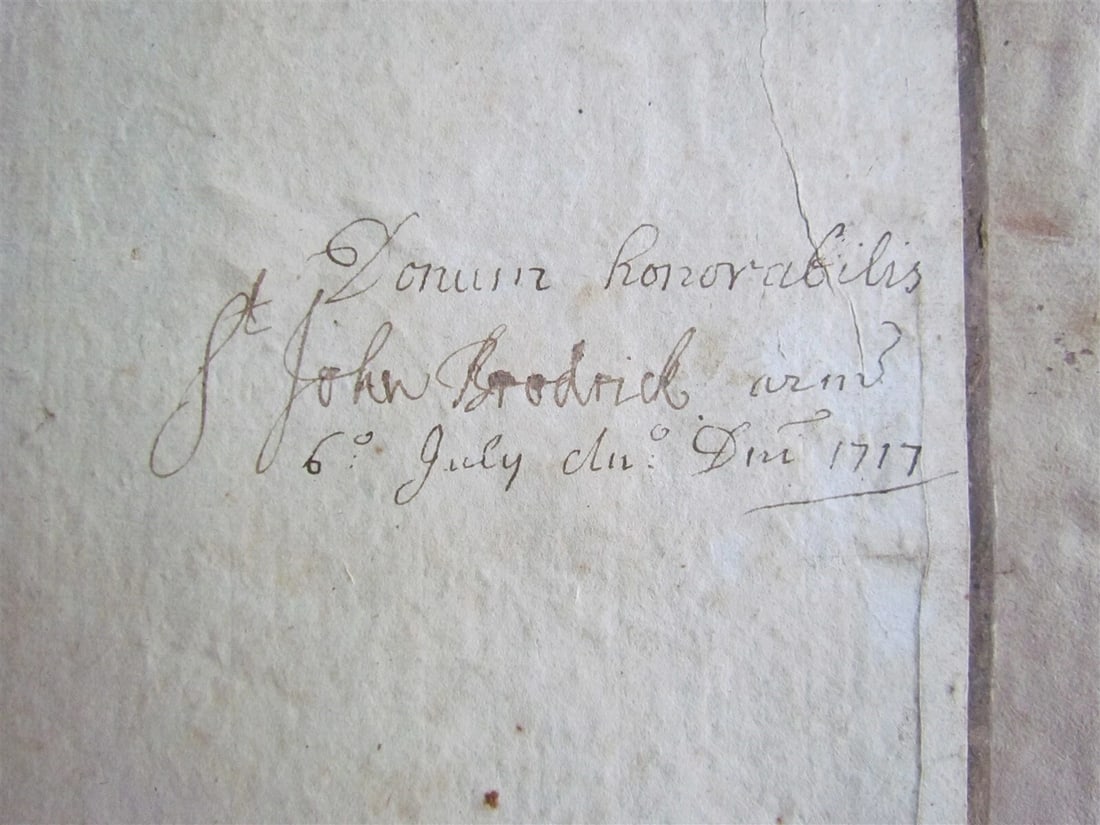 Donum honorabilis
St John Brodrick armr
6o: July Ano: Dni 1717